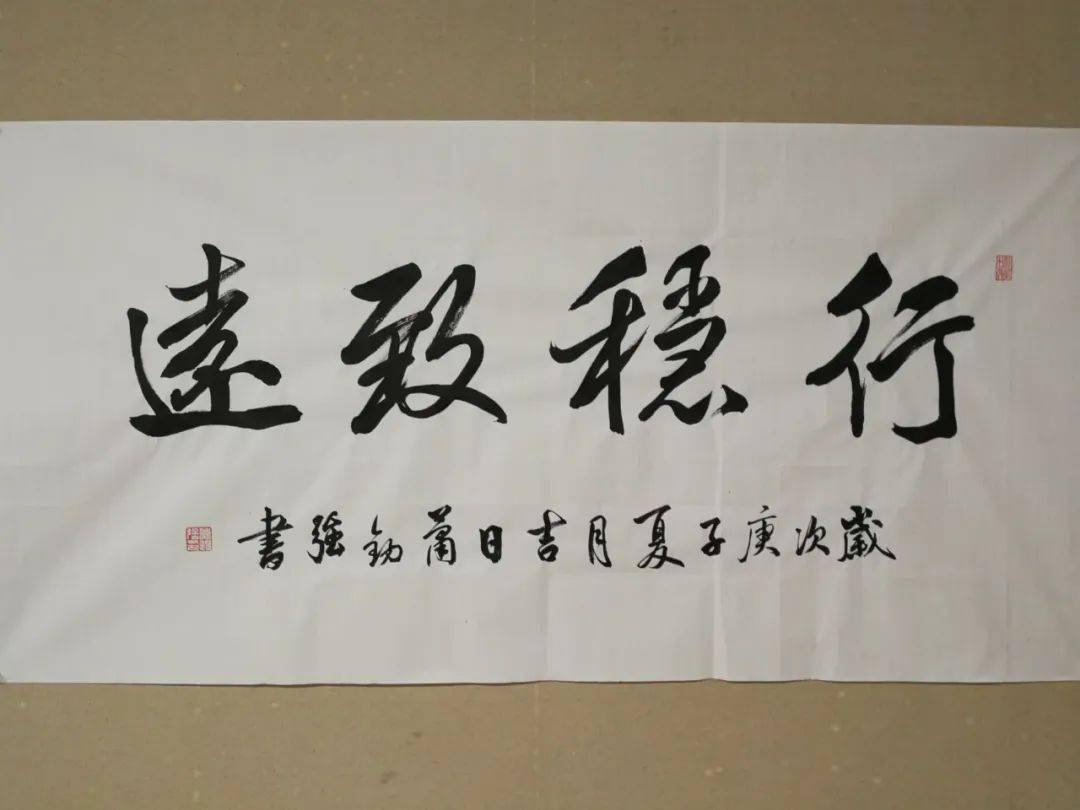 行穩致遠
歲次庚子夏月吉日蕭釹強書